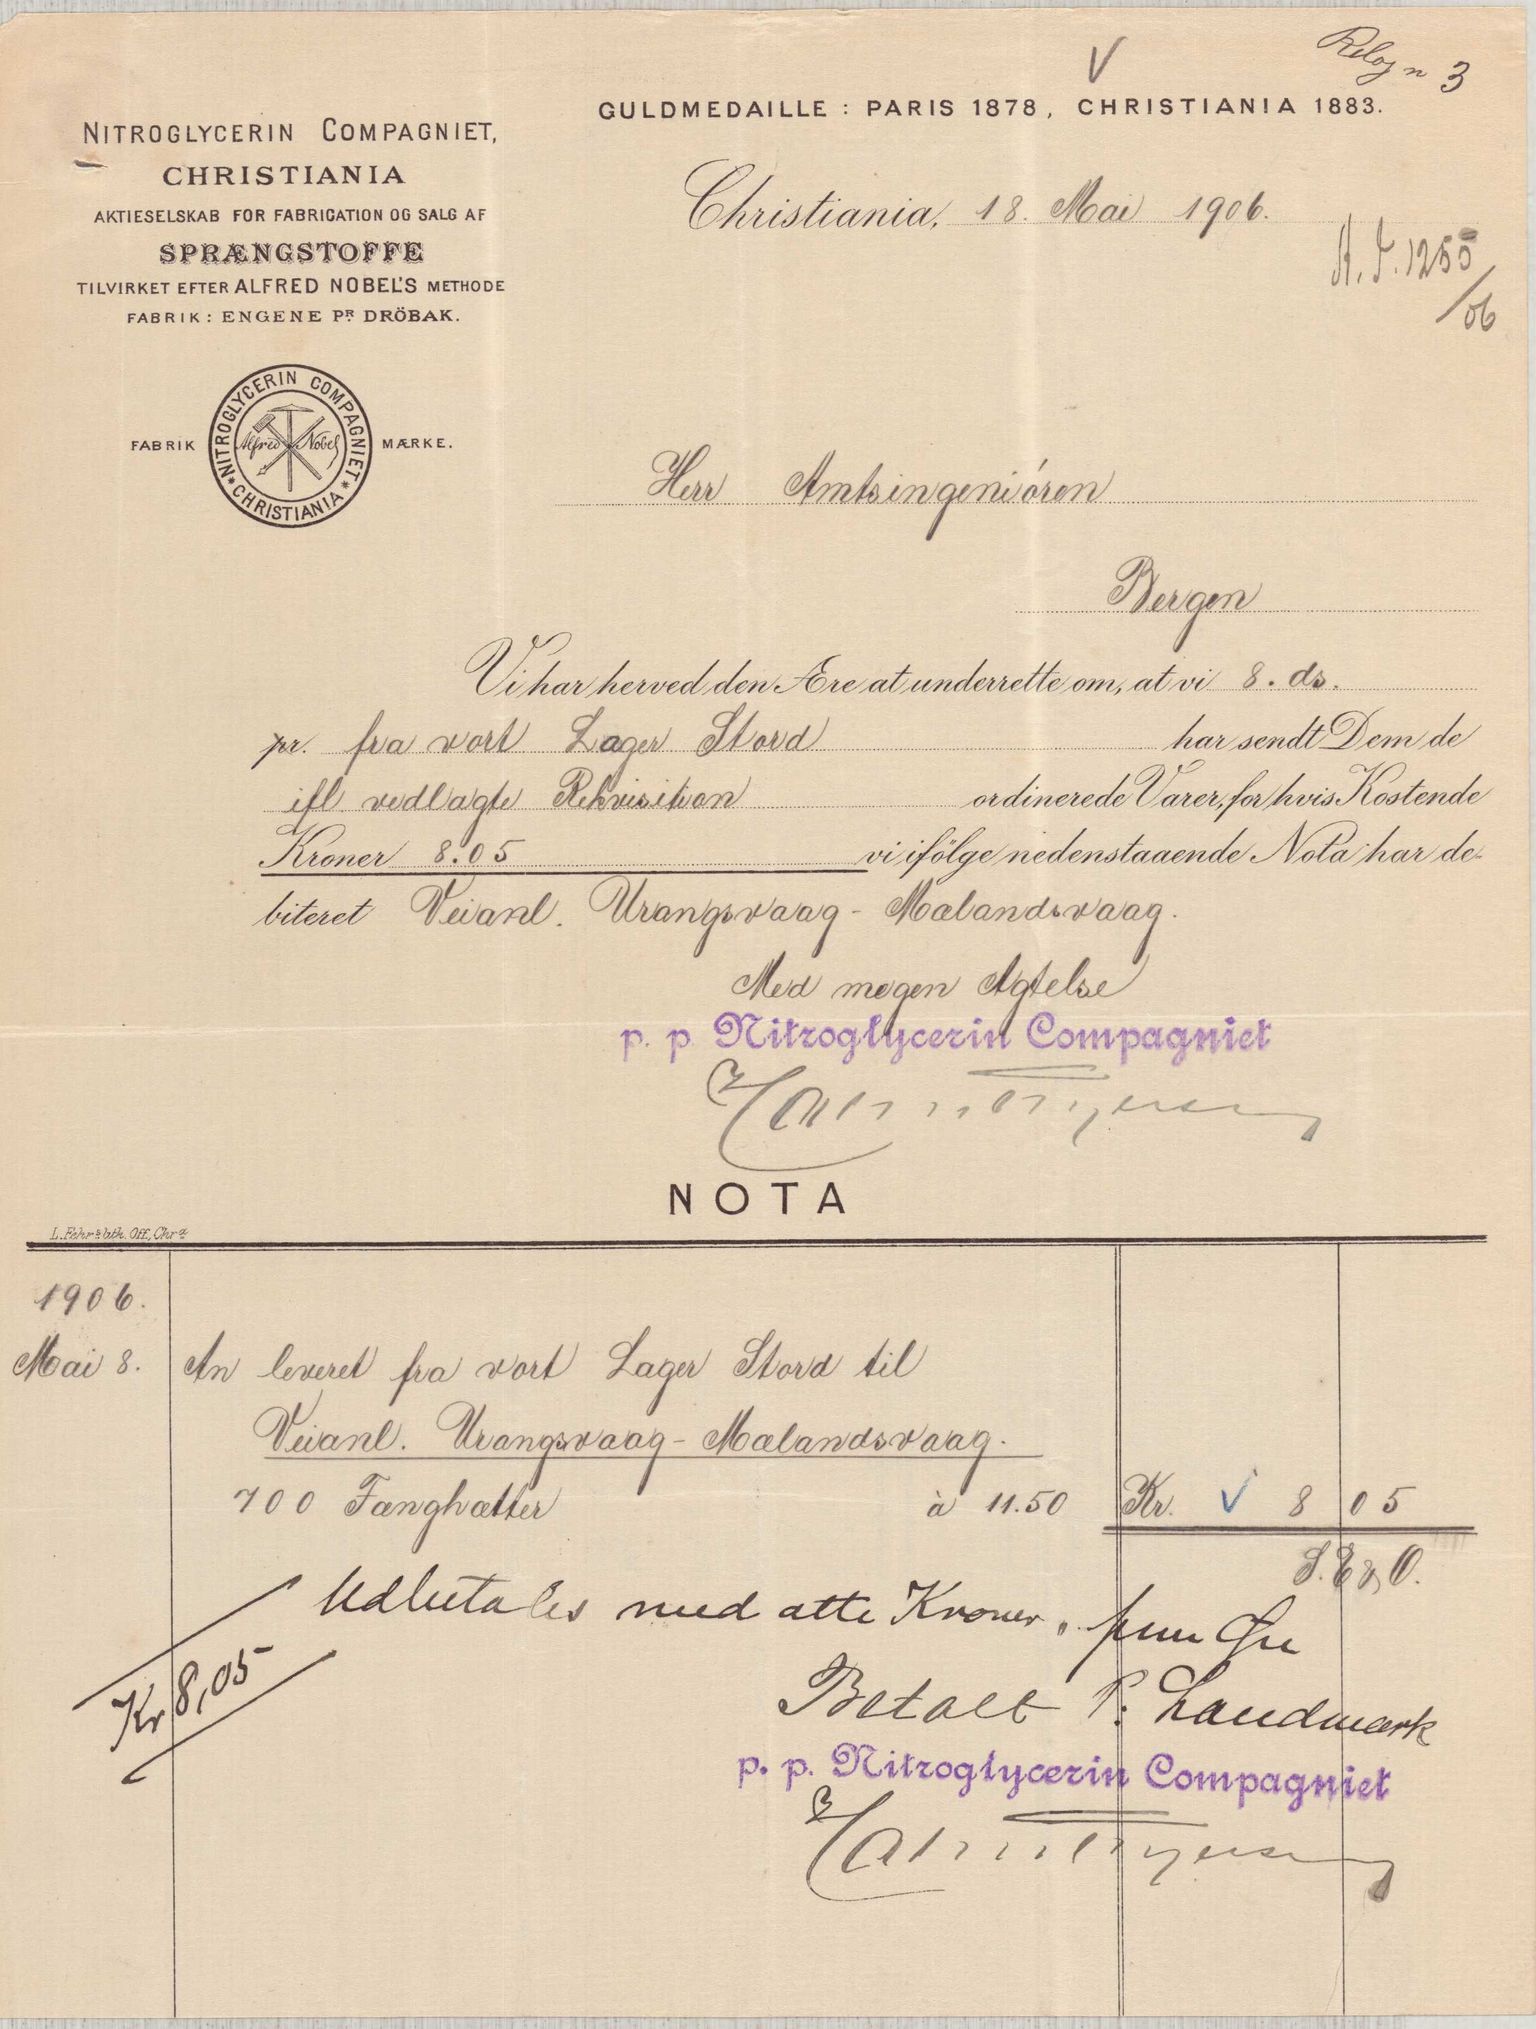 V
3
GULDMEDAILLE : PARIS 1878, CHRISTIANIA 1883.
NITROGLYCERIN COMPAGNIET,
CHRISTIANIA
AKTIESELSKAB FOR FABRICATION OG SALG AF
SPRÆNGSTOFFE
TILVIRKET EFTER ALFRED NOBEL'S METHODE
FABRIK: ENGENE PR DRÖBAK.
Christiania, 18. Mai 1906.
A. J. 1255
/06
FABRIK
NITROGLYCERIN COMPAGNIET
* CHRISTIANIA *
Alfred Nobel
MÆRKE.
Herr Amtsingeniören
Bergen
Vi har herved den Ære at underrette om, at vi 8. ds.
pr. fra vort Lager Stord har sendt Dem de
ifl vedlagte Rekvisition ordinerede Varer, for hvis Kostende
Kroner 8.05 vi ifölge nedenstaaende Nota har de-
biteret Veianl. Urangsvaag - Mælandsvaag.
Med megen Agtelse
p. p. Nitroglycerin Compagniet
NOTA
L. Fehr's lith. Off, Chr.a
1906.
Mai 8. An leveret fra vort Lager Stord til
Veianl. Urangsvaag - Mælandsvaag.
700 Fænghætter à 11.50 Kr. V 8 05
S. E & O.
Udbetales med otte Kroner, fem Øre
Kr 8,05
Betalt P. Landmark
p. p. Nitroglycerin Compagniet